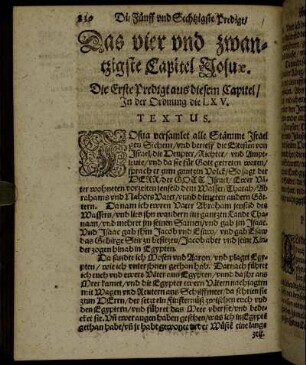 Die Fünff vnd Sechtzigste Predigt/
Das vier vnd zwan-
tzigste Capitel Josuæ.
Die Erste Predigt aus diesem Capitel/
In der Ordnung die LXV.
TEXTUS.
JOsua versamlet alle Stämme Israel
gen Sichem/ vnd berieff die Eltesten von
Israel/ die Heupter/ Richter/ vnd Ampt-
leute/ vnd da sie für Gott getreten waren/
sprach er zum gantzen Volck/ So sagt der
HERR der GOTT Israel: Ewer Vä-
ter wohneten vorzeiten jenseid dem Wasser/ Tharah/ Ab-
rahams vnd Nahors Vater/ vnd dieneten andern Göt-
tern. Da nam ich ewern Vater Abraham jenseid des
Wassers/ vnd lies jhn wandern im gantzen Lande Cha-
naan/ vnd mehret jm seinen Samen/ vnd gab jm Isaac.
Vnd Isaac gab ich Jacob vnd Esau/ vnd gab Esau
das Gebirge Seir zu besitzen/ Jacob aber vnd seine Kin-
der zogen hinab in Egypten.
Da sandte ich Mosen vnd Aaron/ vnd plaget Egy-
pten/ wie ich vnter jhnen gethan hab. Darnach führet
ich euch vnd ewere Väter aus Egypten/ vnd da jhr ans
Meer kamet/ vnd die Egypter ewern Vätern nachjagten
mit Wagen vnd Reutern ans Schilffmeer/ da schrien sie
zum HErrn/ der setzt ein finsternuß zwischen euch vnd
den Egyptern/ vnd führet das Meer vber sie/ vnd bede-
cket sie. Vñ ewer augen haben gesehen/ was ich in Egyptẽ
gethan habe/ vñ jr habt gewonet in der Wüsten eine lange
zeit.